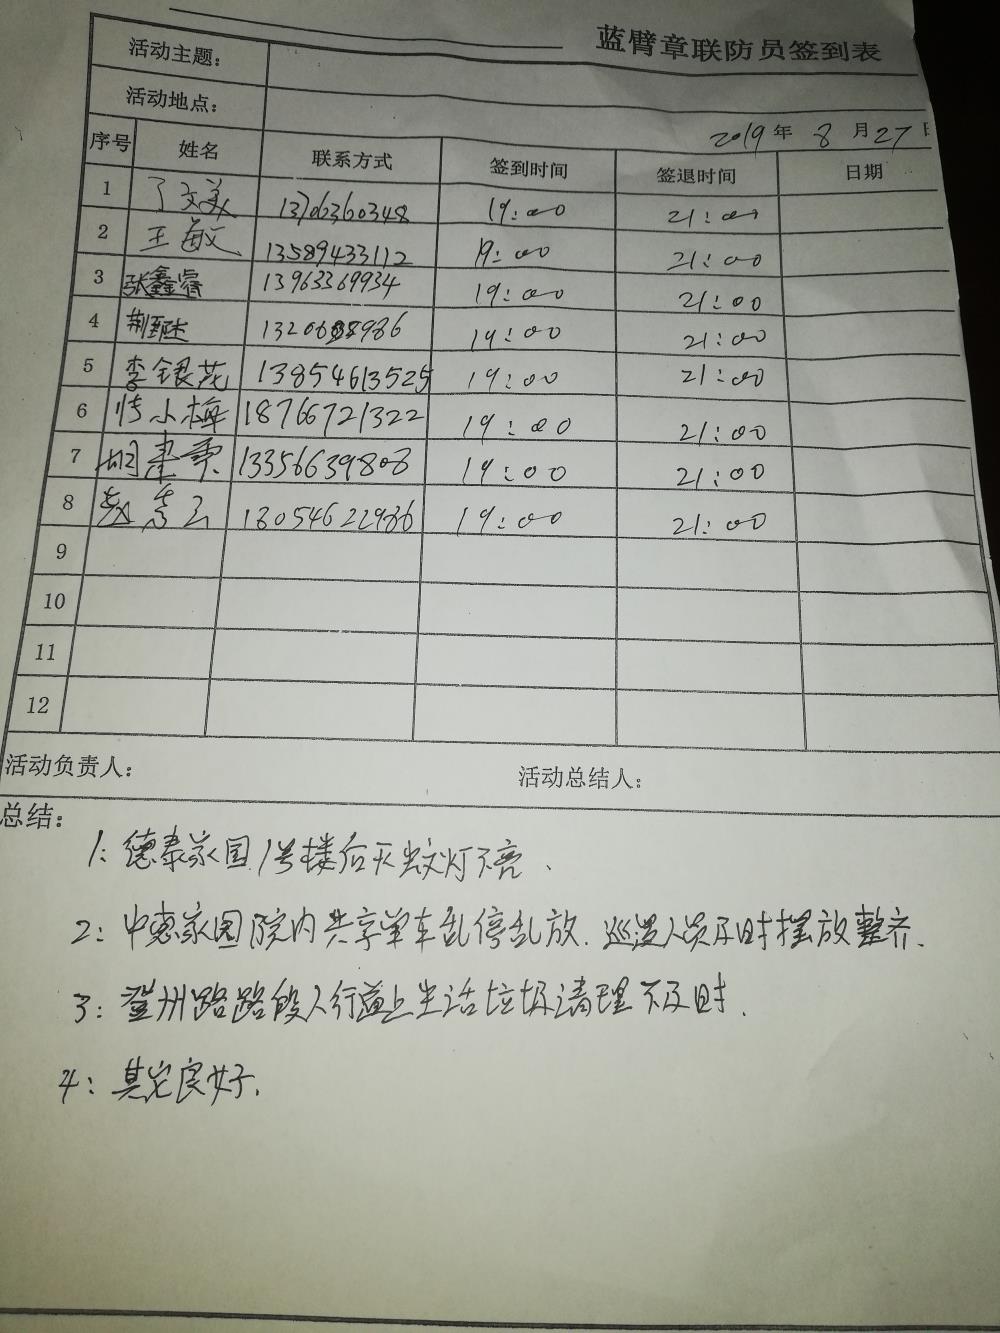 蓝臂章联防员签到表
活动主题：
活动地点：
2019年 8月27日
序号 姓名 联系方式 签到时间 签退时间 日期
1 丁文美 13706360348 19:00 21:00
2 王敏 13589433112 19:00 21:00
3 张鑫睿 13963369934 19:00 21:00
4 19:00 21:00
5 李银花 13854613525 19:00 21:00
6 小梅 18766721322 19:00 21:00
7 胡建 13356639808 19:00 21:00
8 赵 13054622986 19:00 21:00
9
10
11
12
活动负责人： 活动总结人：
总结：
1: 德泰家园1号楼后灭蚊灯不亮、
2: 中惠家园院内共享单车乱停乱放. 巡逻人员及时摆放整齐.
3: 登州路路段人行道上生活垃圾清理不及时.
4: 其它良好.